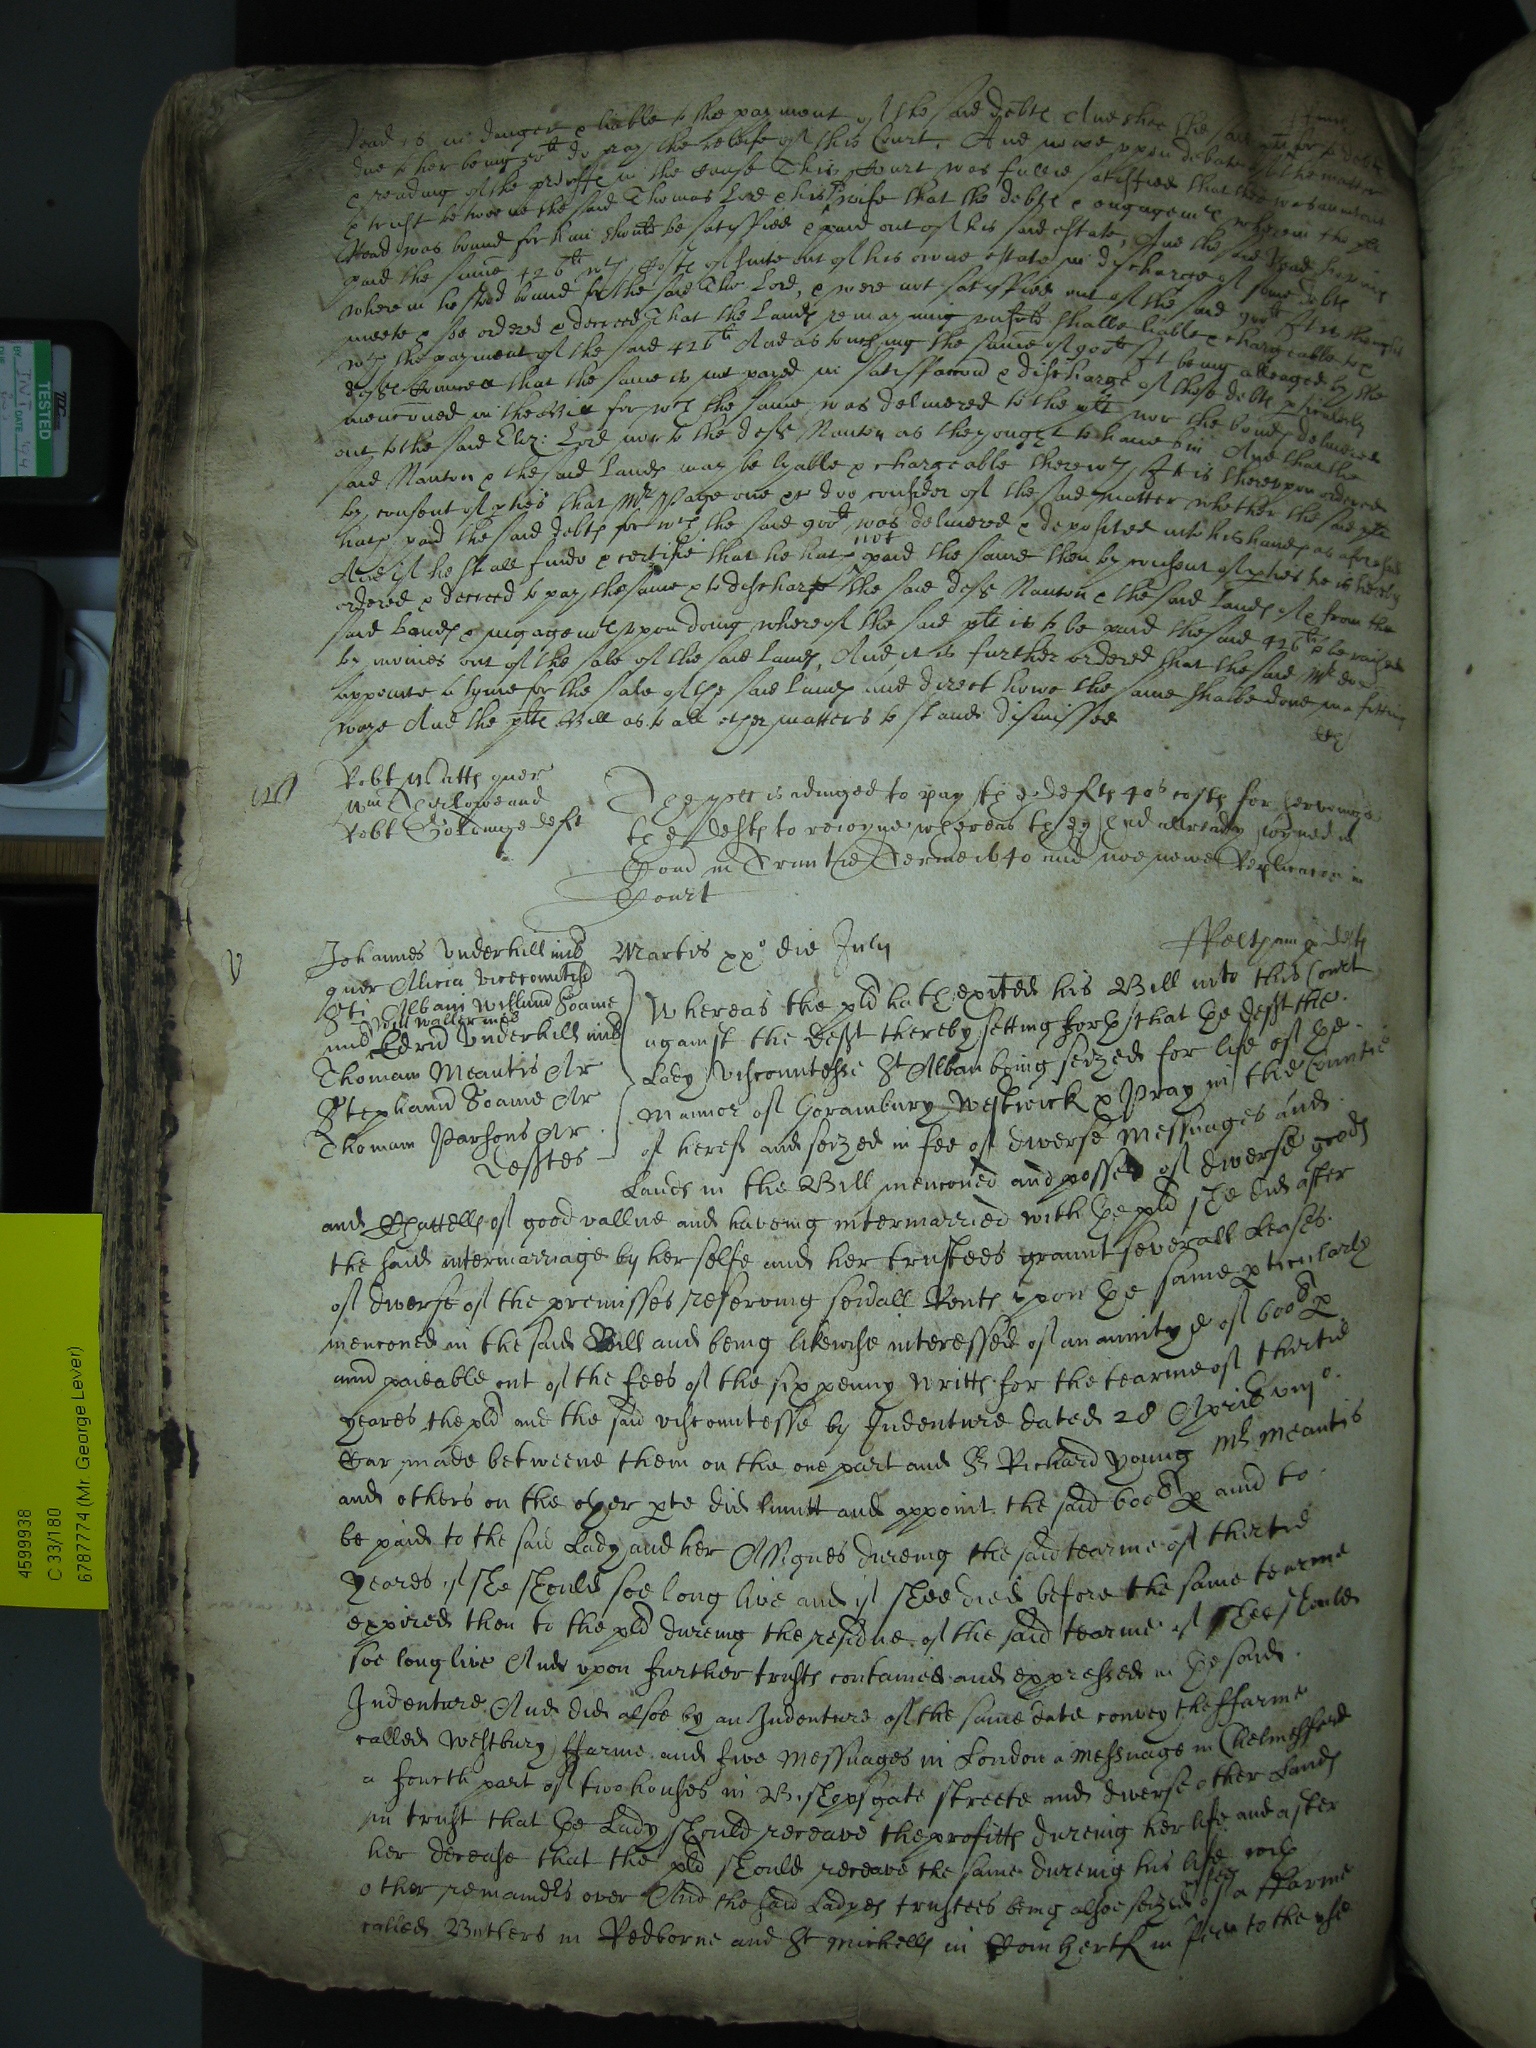 Read is in danger & liable to the payment of the said debts And that the said
due to her being do pay the releife of this Court. And nowe vpon debate of the matter
& reading of the proffes in the cause This Court was fullie satisfied that there was an intent
& trust betweene the said Thomas Lord & his wife that the debts & engagemts wherein the plt
Read was bound for him should be satisfied & paid out of his said estate, And the said Read having
paid the same 426li wch costs of suite out of his owne estate in discharge of some debts
wherein he stood bound for the said Tho: Lord, & were not satisfied out of the said 900li It is thought
meete & soe ordered & decreed That the Lands remayning vnsold shalbe liable & chargeable to &
wth the payment of the said 426li And as touching the same of 900li It being alleaged by the
defts Councell that the same is not payed in satisfaccon & discharge of those debts pticulerly
mencioned in the Bill for wch the same was delivered to the plt nor the bonds delivered
out to the said Eliz: Lord nor to the deft Nanton as they ought to haue bin And that the
said Nanton & the said Lands may be lyable & chargeable therewth It is therevpon ordered
by consent of pties that Mr Page one &c doe consider of the said matter whether the said plt
hath paid the said debts for wch the said 900li was delivered & deposited into his hands as aforesaid
And if he shall finde & certifie that he hath not paid the same then by consent of pties he is hereby
ordered & decreed to pay the same & to discharge the said deft Nanton & the said Lands of & from the
said Bonds & ingagemts vpon doing whereof the said plt is to be paid the said 426li & to be raised
by monies out of the sale of the said Lands, And it is further ordered that the said Mr doe
appointe a tyme for the sale of the said Lands and direct howe the same shalbe done in a fitting
waye And the plts Bill as to all other matters to stand dismissed
Robt Watts quer
Wm and
Robt Goldinge defts
The plt is adiudged to pay the defts 40s costs for serveing
the defts to reioyne whereas they had allready ioyned in
Court in Trinitie Terme 1640 and noe newe Replicacon in
Court
V
Johannes Vnderhill miles
quer Alicia vicecomitissa
Sti Albani Willimus Soame
miles Willm Waller miles
Edrus Vnderhill miles
Thomam Meautis Ar
Stephanus Soame Ar
Thomam Parsons Ar
Defftes
Martis xxo die Julij
Whereas the pld hath exhited his Bill into this Court
against the Defft thereby setting forth that the Defft the
Lady Viscountesse St Alban being seized for life of the
Mannor of Gorambury Westwick & Pray in the Countie
of hertf and seized in fee of diverse Messuages and
Lands in the Bill menconed and possed of diverse goods
and Chattells of good vallue and haveing intermarried with the pld she did after
the said intermarriage by her selfe and her trustees graunt severall Leases
of diverse of the premisses reserving serall Rents vpon the same pticularly
menconed in the said Bill and being likewise interessed of an annitye of 600li p
annu paieable out of the fees of the six penny Writts for the tearme of thirtie
yeares the pld and the said viscountesse by Indenture dated 28 Aprilis viijo
Car made betweene them on the one part and Sr Richard Young Mr Meautis
and others on the other pte did limitt and appoint the said 600li p annu to
be paid to the said Lady and her Assignes dureing the said tearme of thirtie
yeares if she should soe long live and if shee died before the same tearme
expired then to the pld dureing the residue of the said tearme if shee should
soe long live And vpon further trusts contained and expressed in the said
Indenture And did alsoe by an Indenture of the same date convey the ffarme
called Westbury ffarme and five Messuages in London a Messuage in Chelmesford
a fourth part of two houses in Bishopsgate streete and diverse other Lands
in trust that the Lady should receave the profitts dureing her life and after
her decease that the pld should receave the same dureing his life with
other remaindrs over And the said Ladyes trustees being alsoe seized in fee of a ffarme
called Butlers in Redborne and St Michells in Com hertf in fee to the vse
TESTED
BY
DATE
4599938
C 33/180
6787774 (Mr George Lever)